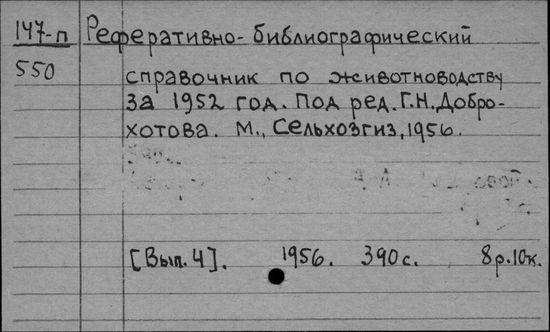 147-п Реферативно-библиографический
550 справочник по животноводству
за 1952 год. Под ред. Г.Н. Добро-
хотова. М., Сельхозгиз, 1956.
[Вып. 4]. 1956. 390 с. 8 р. 10 к.